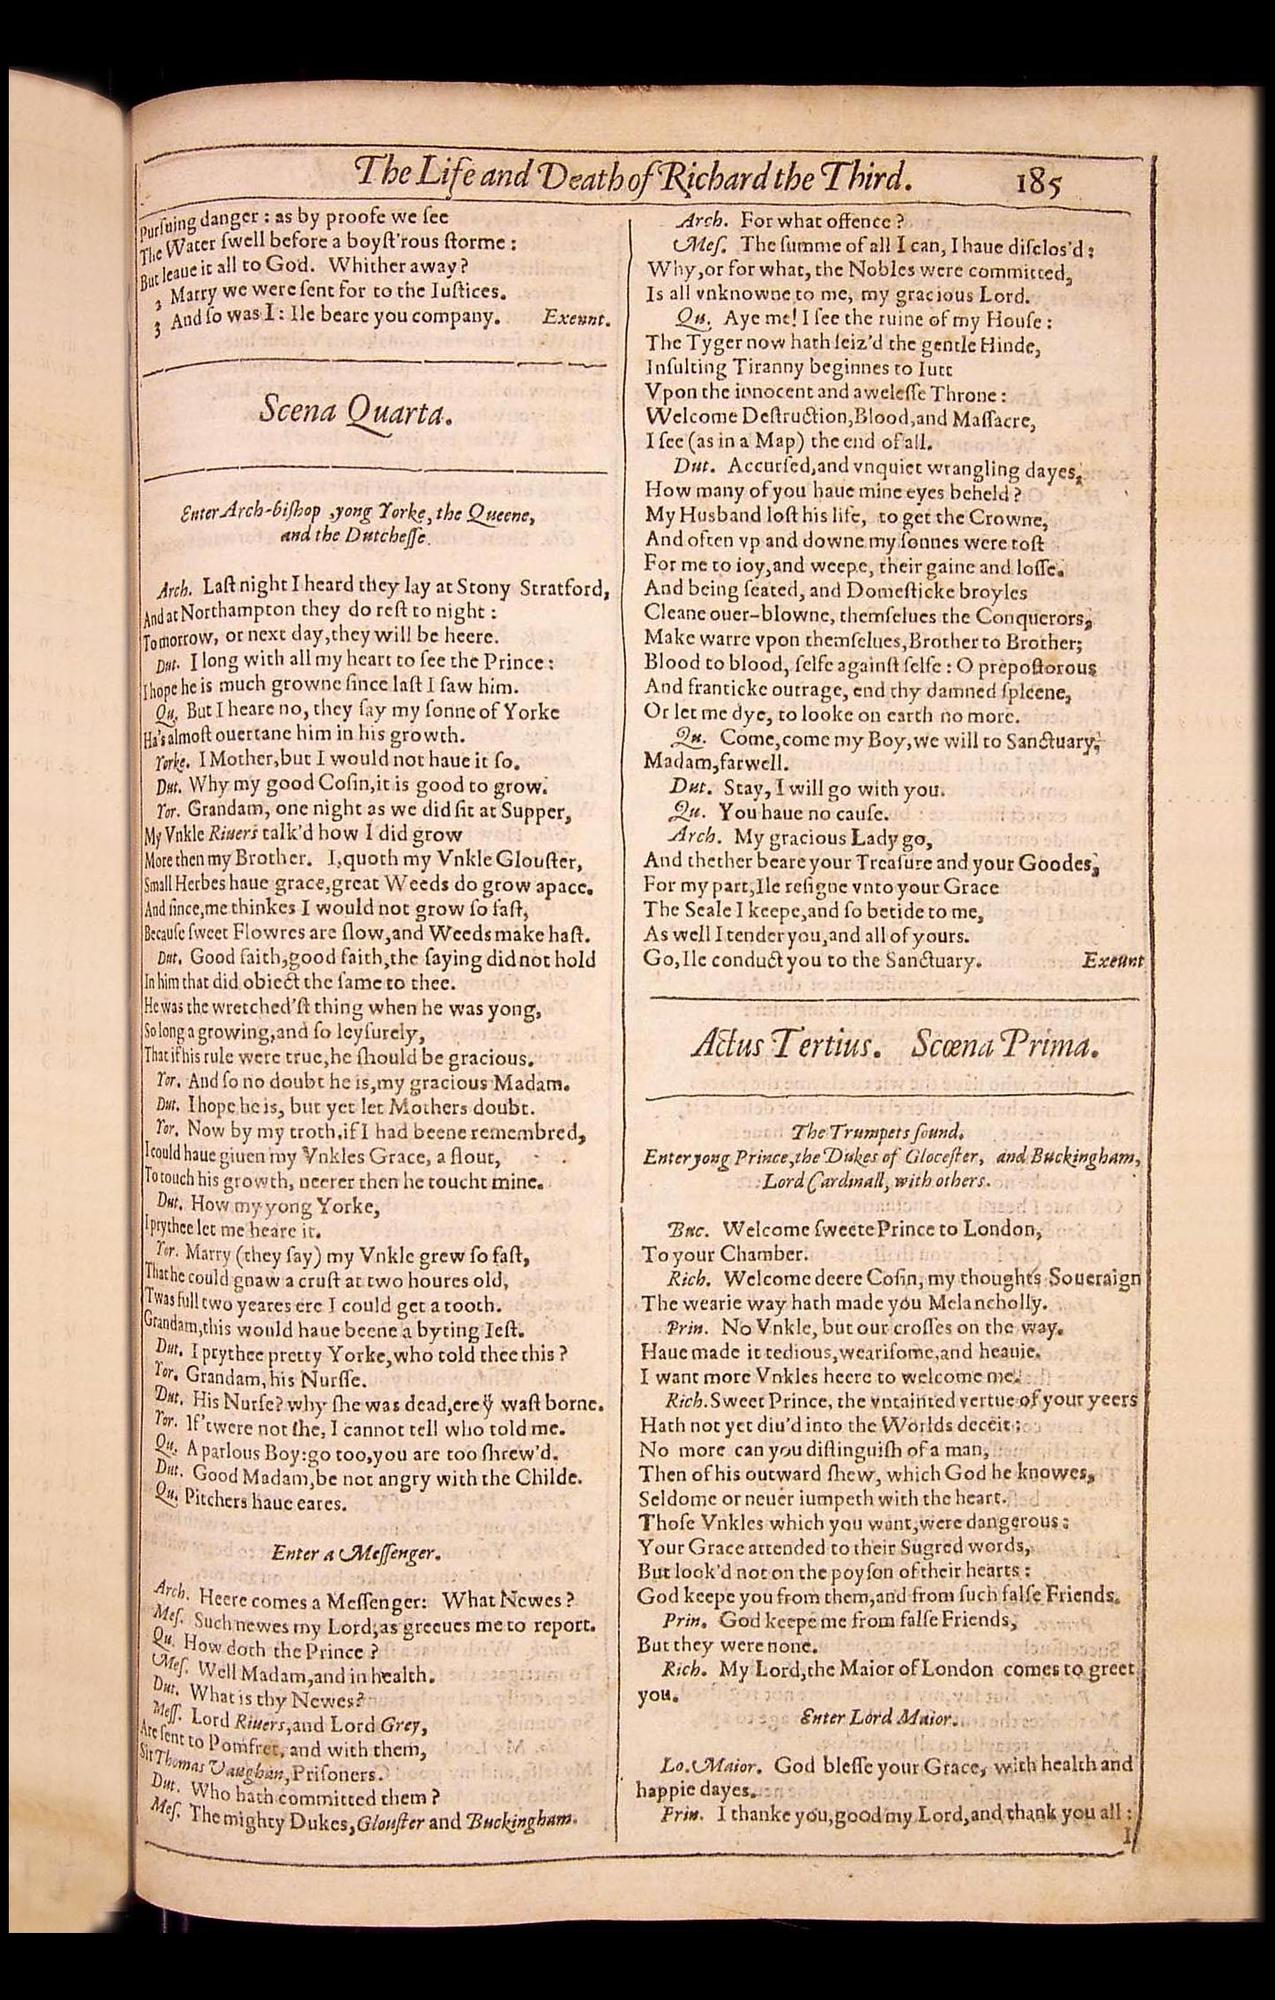 The Life and Death of Richard the Third. 185
Pursuing danger: as by proofe we see
The Water swell before a boyst'rous storme:
But leaue it all to God. Whither away?
2 Marry we were sent for to the Iustices.
3 And so was I: Ile beare you company. Exeunt.
Scena Quarta.
Enter Arch-bishop ,yong Yorke, the Queene,
and the Dutchesse.
Arch. Last night I heard they lay at Stony Stratford,
And at Northampton they do rest to night:
Tomorrow, or next day,they will be heere.
Dut. I long with all my heart to see the Prince:
I hope he is much growne since last I saw him.
Qu. But I heare no, they say my sonne of Yorke
Ha's almost ouertane him in his growth.
Yorke. I Mother,but I would not haue it so.
Dut. Why my good Cosin,it is good to grow.
Yor. Grandam, one night as we did sit at Supper,
My Vnkle Riuers talk'd how I did grow
More then my Brother. I,quoth my Vnkle Glouster,
Small Herbes haue grace,great Weeds do grow apace.
And since,me thinkes I would not grow so fast,
Because sweet Flowres are slow,and Weeds make hast.
Dut. Good faith,good faith,the saying did not hold
In him that did obiect the same to thee.
He was the wretched'st thing when he was yong,
So long a growing,and so leysurely,
That if his rule were true,he should be gracious.
Yor. And so no doubt he is,my gracious Madam.
Dut. I hope he is, but yet let Mothers doubt.
Yor. Now by my troth,if I had beene remembred,
I could haue giuen my Vnkles Grace, a flout,
To touch his growth, neerer then he toucht mine.
Dut. How my yong Yorke,
I prythee let me heare it.
Yor. Marry (they say) my Vnkle grew so fast,
That he could gnaw a crust at two houres old,
'Twas full two yeares ere I could get a tooth.
Grandam,this would haue beene a byting Iest.
Dut. I prythee pretty Yorke,who told thee this?
Yor. Grandam,his Nursse.
Dut. His Nurse? why she was dead,ere yͧ wast borne.
Yor. If 'twere not she, I cannot tell who told me.
Qu. A parlous Boy:go too,you are too shrew'd.
Dut. Good Madam,be not angry with the Childe.
Qu. Pitchers haue eares.
Enter a Messenger.
Arch. Heere comes a Messenger: What Newes?
Mes. Such newes my Lord,as greeues me to report.
Qu. How doth the Prince?
Mes. Well Madam,and in health.
Dut. What is thy Newes?
Mess. Lord Riuers,and Lord Grey,
Are sent to Pomfret, and with them,
Sir Thomas Vaughan,Prisoners.
Dut. Who hath committed them?
Mes. The mighty Dukes,Glouster and Buckingham.
Arch. For what offence?
Mes. The summe of all I can, I haue disclos'd:
Why,or for what, the Nobles were committed,
Is all vnknowne to me, my gracious Lord.
Qu. Aye me! I see the ruine of my House:
The Tyger now hath seiz'd the gentle Hinde,
Insulting Tiranny beginnes to Iutt
Vpon the innocent and awelesse Throne:
Welcome Destruction,Blood,and Massacre,
I see (as in a Map) the end of all.
Dut. Accursed,and vnquiet wrangling dayes,
How many of you haue mine eyes beheld?
My Husband lost his life, to get the Crowne,
And often vp and downe my sonnes were tost
For me to ioy,and weepe, their gaine and losse.
And being seated, and Domesticke broyles
Cleane ouer-blowne, themselues the Conquerors,
Make warre vpon themselues,Brother to Brother;
Blood to blood, selfe against selfe: O prepostorous
And franticke outrage, end thy damned spleene,
Or let me dye, to looke on earth no more.
Qu. Come,come my Boy,we will to Sanctuary.
Madam,farwell.
Dut. Stay, I will go with you.
Qu. You haue no cause.
Arch. My gracious Lady go,
And thether beare your Treasure and your Goodes,
For my part,Ile resigne vnto your Grace
The Seale I keepe,and so betide to me,
As well I tender you,and all of yours.
Go,Ile conduct you to the Sanctuary. Exeunt
Actus Tertius. Scœna Prima.
The Trumpets sound.
Enter yong Prince,the Dukes of Glocester, and Buckingham,
Lord Cardinall, with others.
Buc. Welcome sweete Prince to London,
To your Chamber.
Rich. Welcome deere Cosin, my thoughts Soueraign
The wearie way hath made you Melancholly.
Prin. No Vnkle, but our crosses on the way,
Haue made it tedious,wearisome,and heauie.
I want more Vnkles heere to welcome me.
Rich. Sweet Prince, the vntainted vertue of your yeers
Hath not yet diu'd into the Worlds deceit:
No more can you distinguish of a man,
Then of his outward shew, which God he knowes,
Seldome or neuer iumpeth with the heart.
Those Vnkles which you want,were dangerous:
Your Grace attended to their Sugred words,
But look'd not on the poyson of their hearts:
God keepe you from them,and from such false Friends.
Prin. God keepe me from false Friends,
But they were none.
Rich. My Lord,the Maior of London comes to greet
you.
Enter Lord Maior.
Lo.Maior. God blesse your Grace, with health and
happie dayes.
Prin. I thanke you,good my Lord,and thank you all:
I